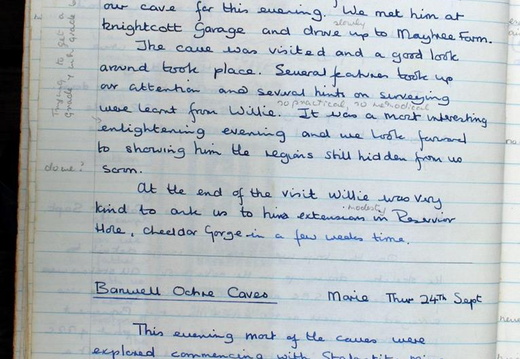 our cave for this evening. We met him at
slowly
Knightcott Garage and drove up to Mayhree Farm.
The cave was visited and a good look
around took place. Several features took up
our attention and several hints on surveying
so practical, so methodical
were learnt from Willie. It was a most interesting
enlightening evening and we look forward
to showing him the regions still hidden from us
soon.
done?
At the end of the visit Willie was very
modesty
kind to ask us to his extensions in Reservoir
Hole, Cheddar Gorge in a few weeks time.
Banwell Ochre Caves Marie Thur 24th Sept
This evening most of the caves were
explored commencing with